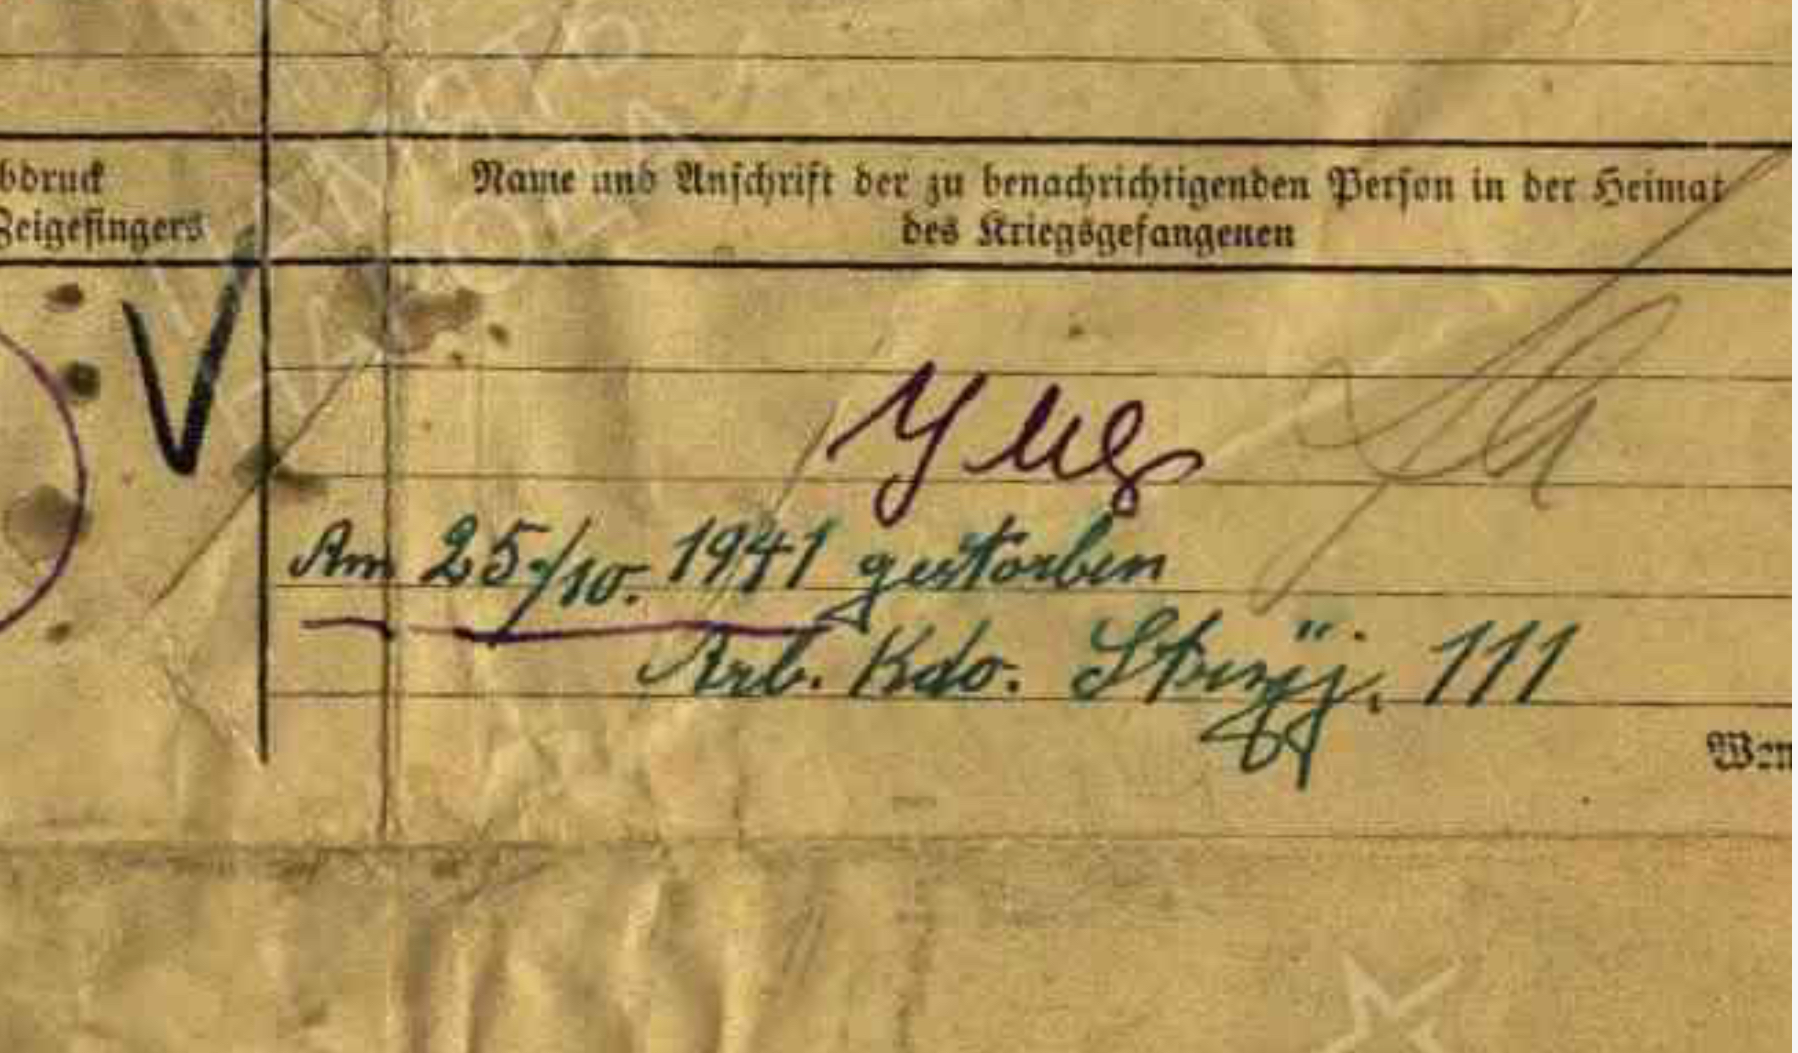 bdruck
Zeigefingers
Name und Anschrift der zu benachrichtigenden Person in der Heimat
des Kriegsgefangenen
V
Am 25./10. 1941 gestorben
Arb. Kdo. 111